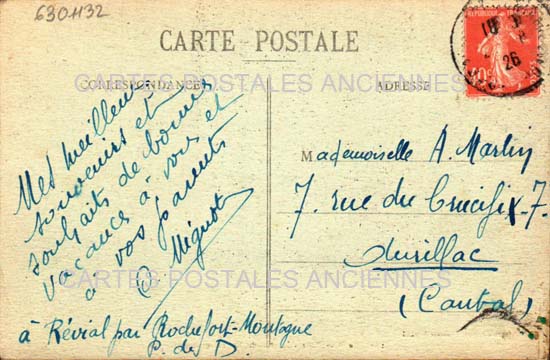 6301132
CARTE POSTALE
CARTES POSTALES ANCIENNES
CORRESPONDANCE
ADRESSE
Mes meilleurs
souvenirs et
souhaits de bonnes
vacances à vous et
à vos parents
Mignot
à Révial par Rochefort-Montagne
P. de D
Mademoiselle A. Martin
7. rue du Crucifix-7.
Aurillac
(Cantal)
CARTES POSTALES ANCIENNES
REPUBLIQUE FRANÇAISE
10c
18
26